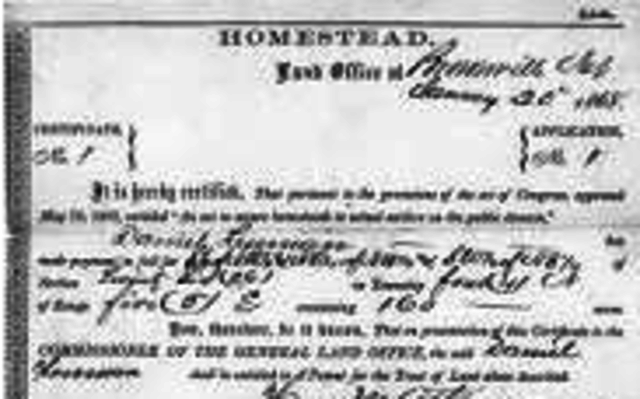 HOMESTEAD.
Land Office at Brownville
January 20 1868.
CERTIFICATE, APPLICATION,
No. 1 No. 1
It is hereby certified, That pursuant to the provisions of the act of Congress, approved
May 20, 1862, entitled "An act to secure homesteads to actual settlers on the public domain,"
Daniel Freeman has
made payment in full for of
Section in Township four (4)
of Range five (5) E containing 160 acres.
Now, therefore, be it known, That on presentation of this Certificate to the
COMMISSIONER OF THE GENERAL LAND OFFICE, the said Daniel
Freeman shall be entitled to a Patent for the Tract of Land above described.